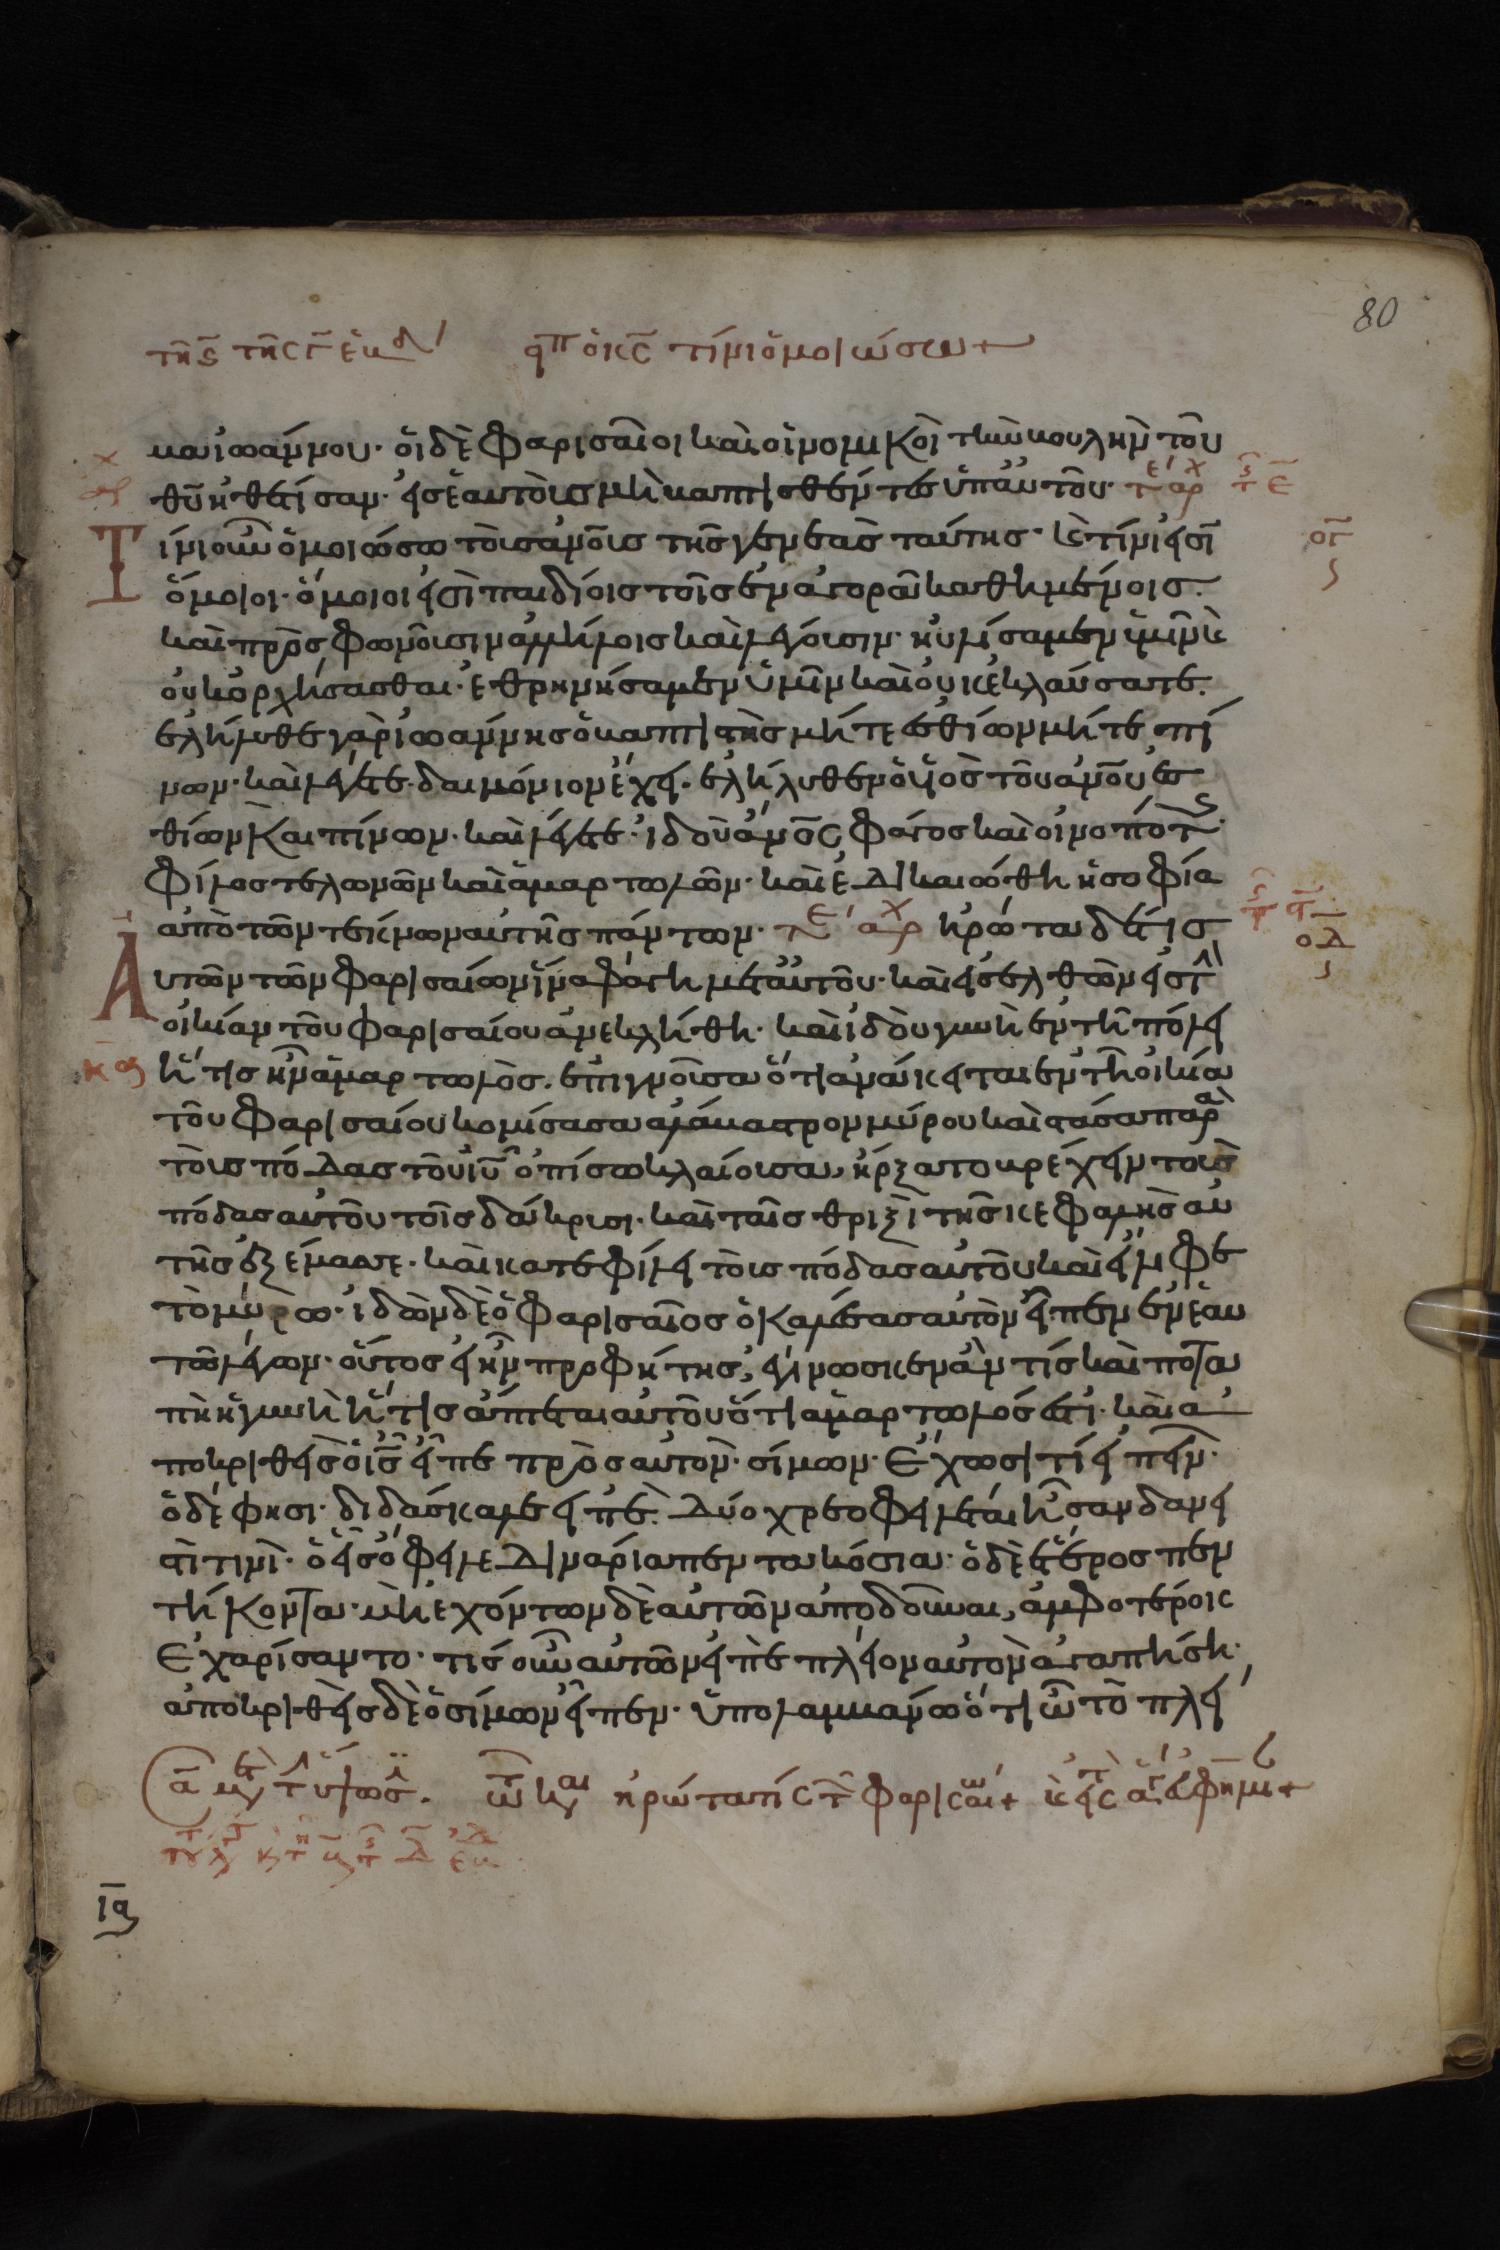 τῆ ς̄ τῆς γ̄ ἑβδ εἶπ ὁ κς̄ τίνι ὁμοιώσω +
βα ἰωάννου· οἱ δὲ φαρισαῖοι καὶ οἱ νομικοὶ τὴν βουλὴν τοῦ
θῦ ἠθέτησαν· εἰς ἑαυτοὺς μὴ βαπτισθέντες ὑπ' αὐτοῦ·
Τίνι οὖν ὁμοιώσω τοὺς ἀνους τῆς γενεᾶς ταύτης· κ τίνι εἰσὶ
ὅμοιοι· ὅμοιοι εἰσὶ παιδίοις τοῖς ἐν ἀγορᾶ καθημένοις.
καὶ προσφωνοῦσιν ἀλλήλοις καὶ λέγουσιν· ηὐλήσαμεν ὑμῖν κ
οὐκ ὀρχήσασθαι· ἐθρηνήσαμεν ὑμῖν καὶ οὐκ ἐκλαύσατε.
ἐλήλυθε γὰρ ἰωάννης ὁ βαπτιστὴς μήτε ἐσθίων μήτε πί
νων· καὶ λέγετε· δαιμόνιον ἔχει· ἐλήλυθεν ὁ υἱὸς τοῦ ἀνου ἐσ
θίων καὶ πίνων· καὶ λέγετε· ἰδοὺ ἀνος φάγος καὶ οἰνοπότης·
φίλος τελωνῶν καὶ ἁμαρτωλῶν· καὶ ἐδικαιώθη ἡ σοφία
ἀπὸ τῶν τέκνων αὐτῆς πάντων· ἠρώτα δέ τις
Αὐτῶν τῶν φαρισαίων ἵνα φάγη μετ' αὐτοῦ· καὶ εἰσελθὼν εἰς τὴν
οἰκίαν τοῦ φαρισαίου ἀνεκλήθη· καὶ ἰδοὺ γυνὴ ἐν τῆ πόλει
ἥτις ἦν ἁμαρτωλός· ἐπιγνοῦσα ὅτι ἀνάκειται ἐν τῆ οἰκία
τοῦ φαρισαίου κομίσασα ἀλάβαστρον μύρου καὶ στᾶσα παρὰ
τοὺς πόδας τοῦ ἰυ ὀπίσω κλαίουσα, ἤρξατο βρέχειν τοὺς
πόδας αὐτοῦ τοῖς δάκρυσι· καὶ ταῖς θριξὶ τῆς κεφαλῆς αὐ
τῆς ἐξέμασσε· καὶ κατεφίλει τοὺς πόδας αὐτοῦ καὶ ἤλειφε
τὸ μύρω· ἰδὼν δὲ ὁ φαρισαῖος ὁ καλέσας αὐτὸν εἶπεν ἐν ἑαυ
τῶ λέγων· οὗτος εἰ ἦν προφήτης, ἐγίνωσκεν ἂν τίς καὶ ποτα
πὴ ἡ γυνὴ ἥτις ἅπτεται αὐτοῦ ὅτι ἁμαρτωλός ἐστι· καὶ ἀ
ποκριθεὶς ὁ ἰς εἶπε πρὸς αὐτόν· σίμων· ἔχω σοί τι εἰπεῖν·
ὁ δέ φησι· διδάσκαλε εἰπέ. δύο χρεοφειλέται ἦσαν δανει
στῆ τινι· ὁ εἷς ὄφειλε δηνάρια πεντακόσια· ὁ δὲ ἕτερος πεν
τήκοντα· μὴ ἐχόντων δὲ αὐτῶν ἀποδοῦναι, ἀμφοτέροις
ἐχαρίσαντο· τίς οὖν αὐτῶν εἰπὲ πλεῖον αὐτὸν ἀγαπήσει·
ἀποκριθεὶς δὲ ὁ σίμων εἶπεν· ὑπολαμβάνω ὅτι ὧ τὸ πλεῖ
ἠρώτα τίς τ φαρισαι +
ις
80